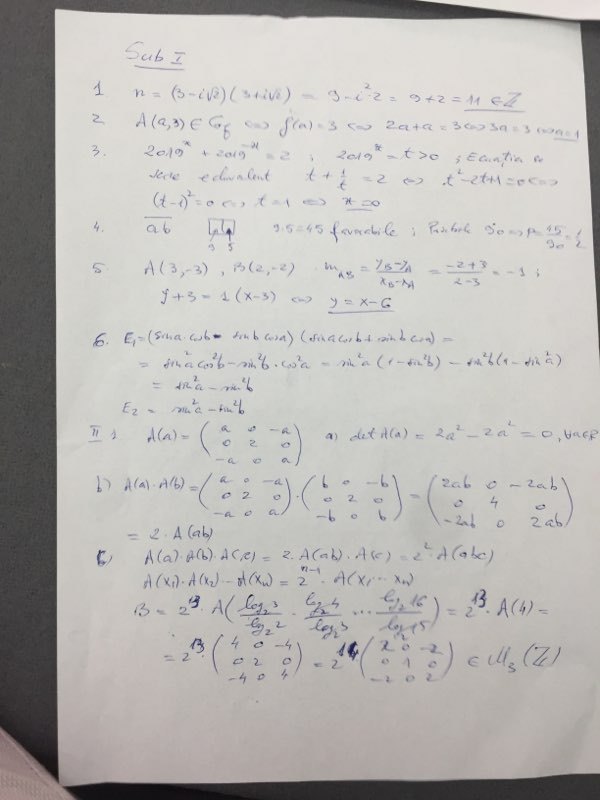 Sub I
1. n = (3-i√2)(3+i√2) = 9-i²·2 = 9+2 = 11 ∈ Z
2. A(a,3) ∈ Gf ⇔ f(a)=3 ⇔ 2a+a=3 ⇔ 3a=3 ⇔ a=1
3. 2019^x + 2019^-x = 2 ; 2019^x = t>0 ; Ecuația se
scrie echivalent t + 1/t = 2 ⇔ t²-2t+1=0 ⇔
(t-1)²=0 ⇔ t=1 ⇔ x=0
4. ab 9 5 9·5=45 favorabile ; Posibile 90 ⇒ P=45/90=1/2
5. A(3,-3), B(2,-2) m_AB = (y_B-y_A)/(x_B-x_A) = (-2+3)/(2-3) = -1 ;
y+3 = 1(x-3) ⇔ y = x-6
6. E₁=(sin a·cos b - sin b cos a)(sin a cos b + sin b cos a) =
= sin²a cos²b - sin²b·cos²a = sin²a(1-sin²b) - sin²b(1-sin²a)
= sin²a - sin²b
E₂ = sin²a - sin²b
II 1 A(a) = (a 0 -a; 0 2 0; -a 0 a) a) det A(a) = 2a²-2a² = 0, ∀a∈R
b) A(a)·A(b) = (a 0 -a; 0 2 0; -a 0 a)·(b 0 -b; 0 2 0; -b 0 b) = (2ab 0 -2ab; 0 4 0; -2ab 0 2ab)
= 2·A(ab)
c) A(a)·A(b)·A(c) = 2·A(ab)·A(c) = 2²·A(abc)
A(x₁)·A(x₂)…A(xₙ) = 2^(n-1)·A(x₁…xₙ)
B = 2^13·A(log₂3/log₂2 · log₂4/log₂3 … log₂16/log₂15) = 2^13·A(4) =
= 2^13·(4 0 -4; 0 2 0; -4 0 4) = 2^14(2 0 -2; 0 1 0; -2 0 2) ∈ M₃(Z)